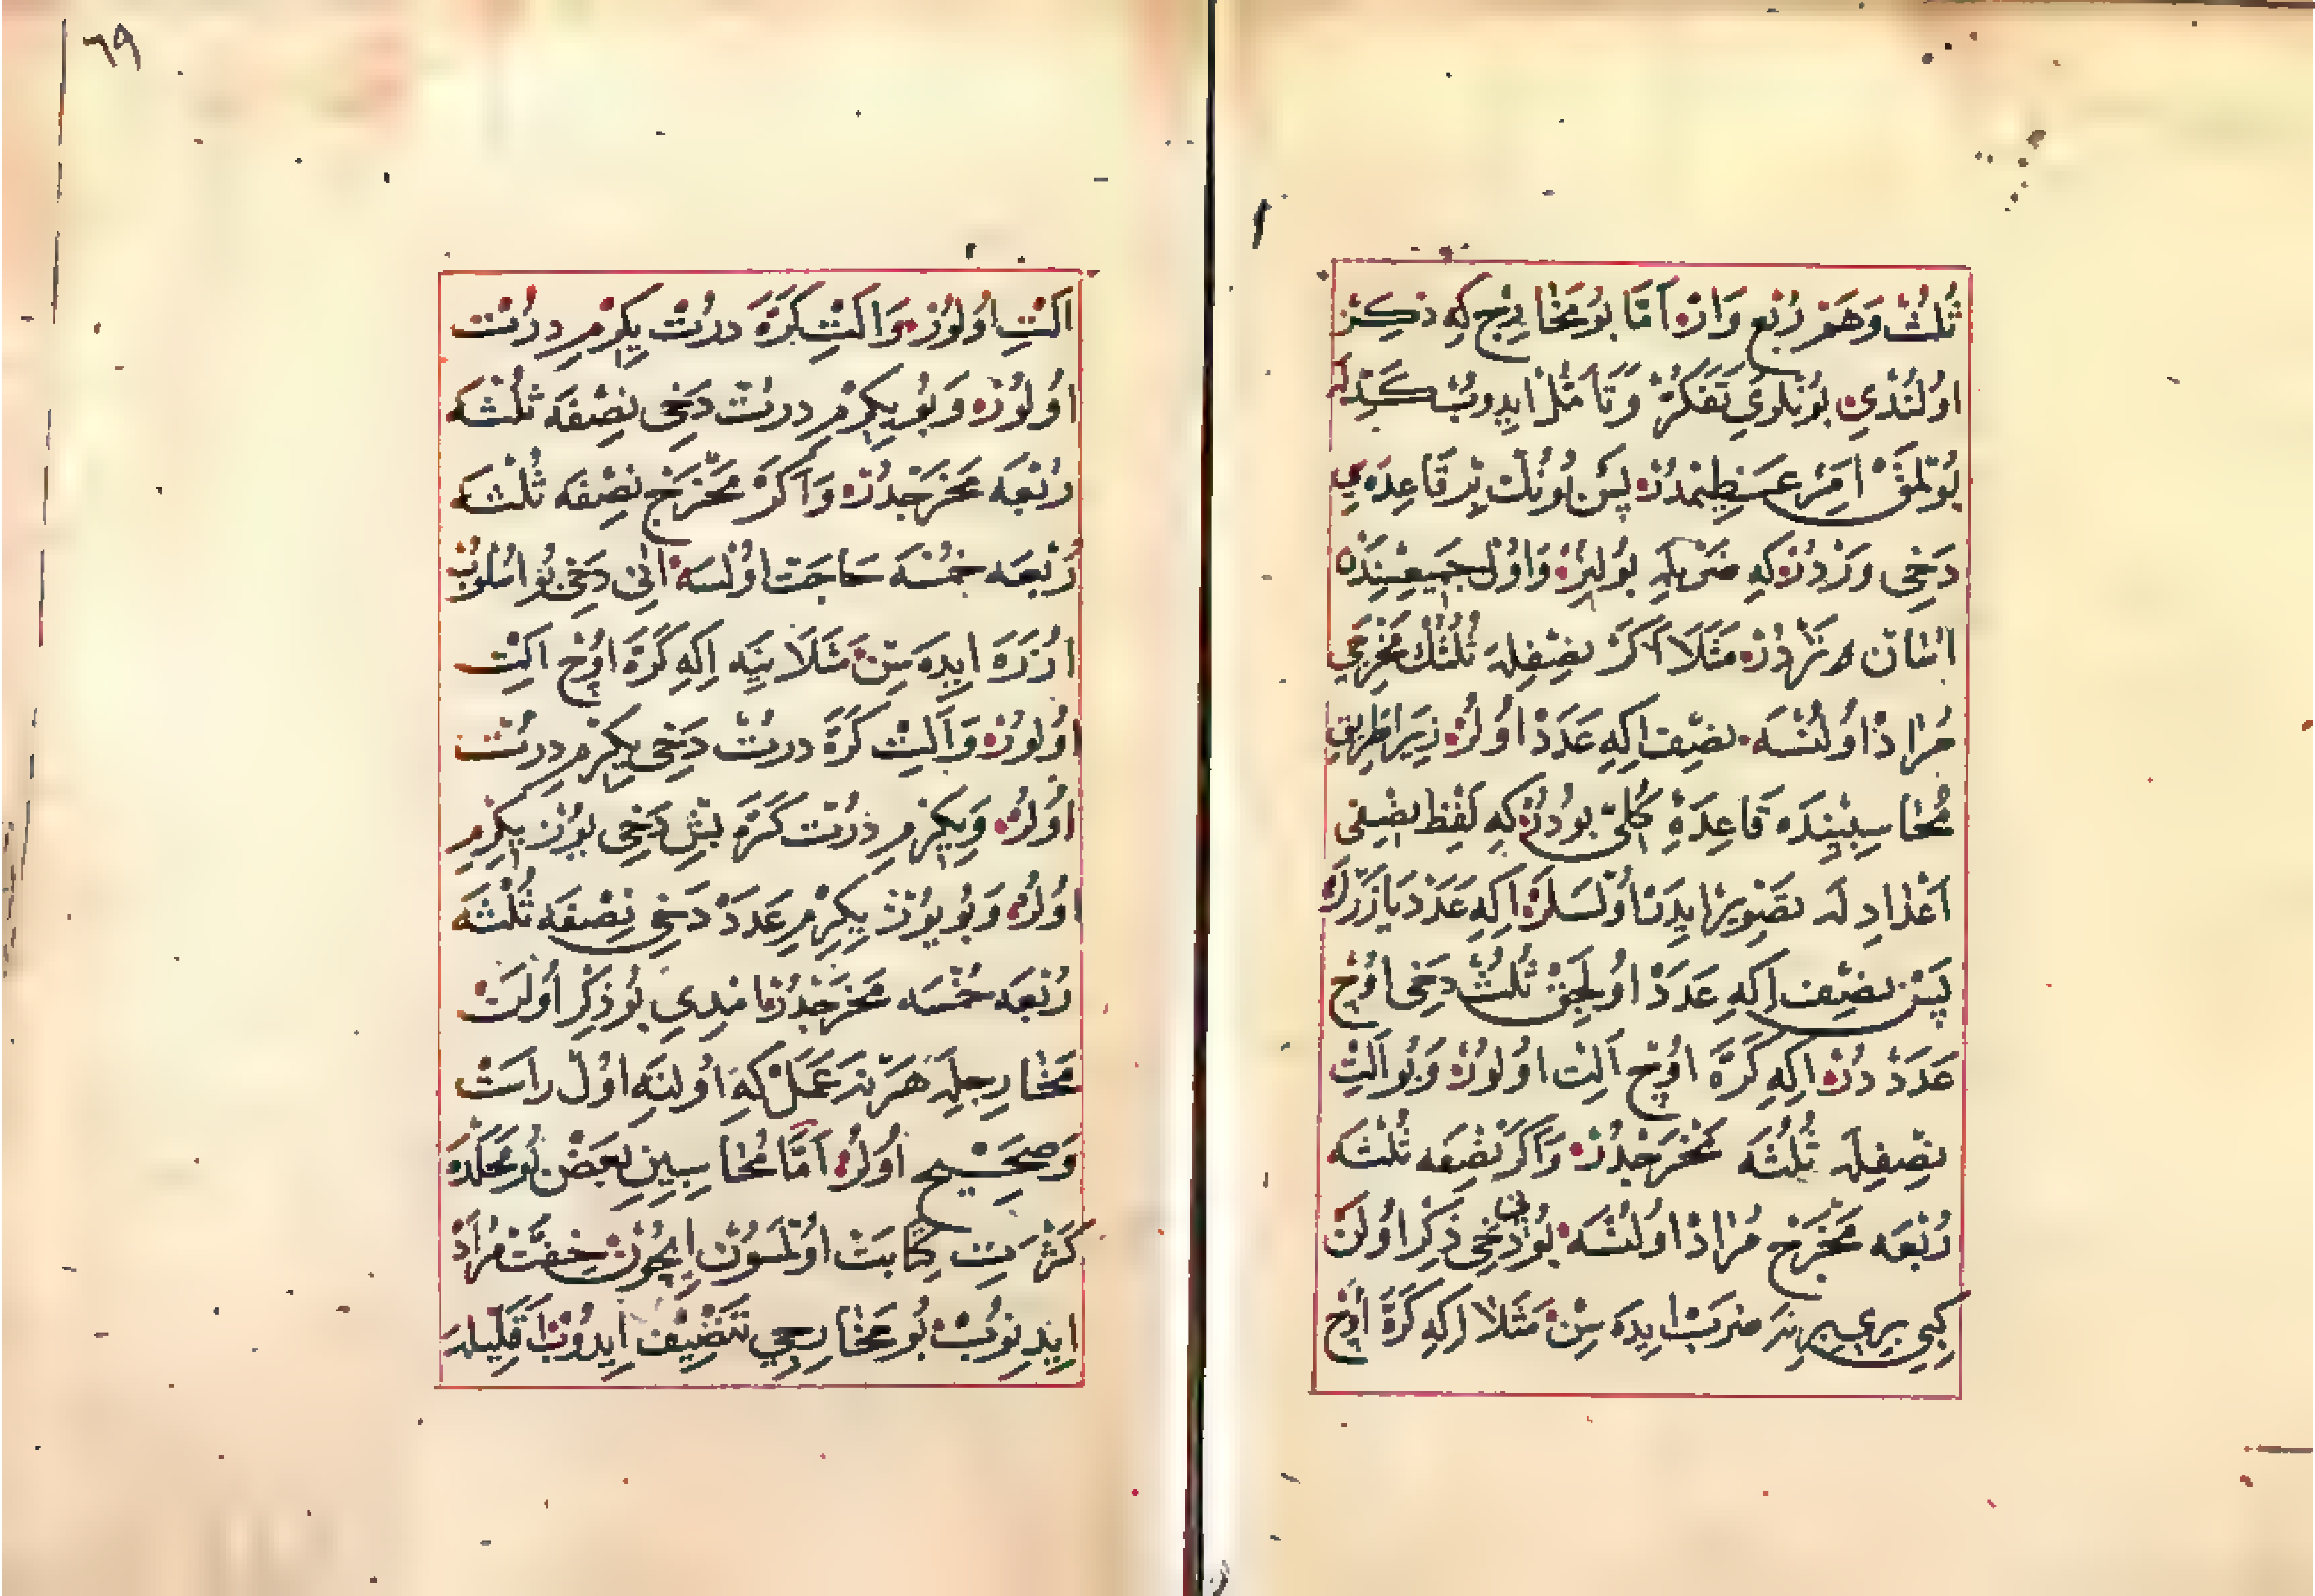 ثُلُثْ وَهَمْ رُبْع وَارْ اَمَّا بُو مَخَارِجْ كِه ذِكِرْ
اُولُنْدِي بُونْلَرِي تَفَكُّرْ وَتَأَمُّلْ اِيدِوبْ كَنْدِلَرْ
بُولْمَقْ اَمْرِ عَظِيمْدُرْ پَسْ بُونُكْ بِرْ قَاعِدَه سِي
دَخِي وَرْدُرْ كِه ضَرْبْلَه بُولِنُرْ وَاُولْ جَمِيعِسِنْدَنْ
اٰسَانْ دَرْدُرْ مَثَلَا اَكَرْ نِصْفِلَه ثُلُثُكْ مَخْرَجِي
مُرَادْ اُولُنْسَه نِصْف اِكِه عَدَدْ اُولُرْ زِيرَا طَرِيقِ
مُحَاسِبِينْدَه قَاعِدَۀِ كُلِّي بُودُرْكِه لَفْظِ نِصْفِى
اَعْدَادِلَه تَصْوِيرْ اِيدَنْ اُولْسَلَرْ اِكِه عَدَدْ يَازَرْلَرْ
پَسْ نِصْف اِكِه عَدَدْ اُولِجَقْ ثُلُثْ دَخِى اُوچْ
عَدَدْ دُرْ اِكِه كَرَّه اُوچْ اَلْتِ اُولُورْ وَبُو اَلْتِ
نِصْفِلَه ثُلُثَه مَخْرَجْدُرْ وَاَكَرْ نِصْفَه ثُلُثَه
رُبْعَه مَخْرَجْ مُرَادْ اُولُنْسَه بُونِ دَخِى ذِكِرْ اُولَنْ
كِبِى بِرِي بِرِنَه ضَرَبْ اِيدَه سِنْ مَثَلَا اِكِه كَرَّه اُوچْ
٦٩
اَلْتِ اُولُورْ وَاَلْتِ كَرَّه دُرْتْ يِكِرْمِ دُرْتْ
اُولُورْ وَبُو يِكِرْمِ دُرْتْ دَخِى نِصْفَه ثُلُثَه
رُبْعَه مَخْرَجْدُرْ وَاَكَرْ مَخْرَجْ نِصْفَه ثُلُثَه
رُبْعَه خُمْسَه حَاجَتْ اُولْسَه اٰنِى دَخِى بُو اُسْلُوبْ
اُزَرَه اِيدَه سِنْ مَثَلَا يِنَه اِكِه كَرَّه اُوچْ اَلْتِ
اُولُورْ وَاَلْتِ كَرَّه دُرْتْ دَخِى يِكِرْمِ دُرْتْ
اُولُرْ وَيِكِرْمِ دُرْتْ كَرَّه بَشْ دَخِى يُوزْ يِكِرْمِ
اُولُرْ وَبُو يُوزْ يِكِرْمِ عَدَدْ دَخِى نِصْفَه ثُلُثَه
رُبْعَه خُمْسَه مَخْرَجْدُرْ اِمْدِي بُو ذِكِرْ اُولَنْ
مَخَارِجِلَه هَرْ نَه عَمَلْ كِه اُولُنَه اُولْ رَاسْتْ
وَصَحِيحْ اُولُرْ اَمَّا مُحَاسِبِينِ بَعْضْ بُو مَحَلْدَه
كَثْرَتِ كِتَابَتْ اُولْمَسُونْ اِيچُونْ خِفَّتْ مُرَادْ
اِيدِنُوبْ بُو مَخَارِجِي تَنْصِيفْ اِيدُوبْ اَقَلِّيلَه